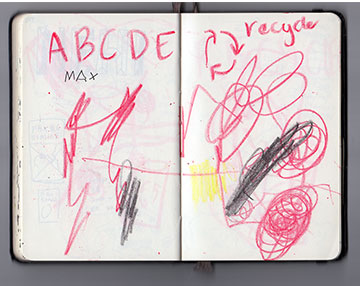 ABCDE
MAX
recycle